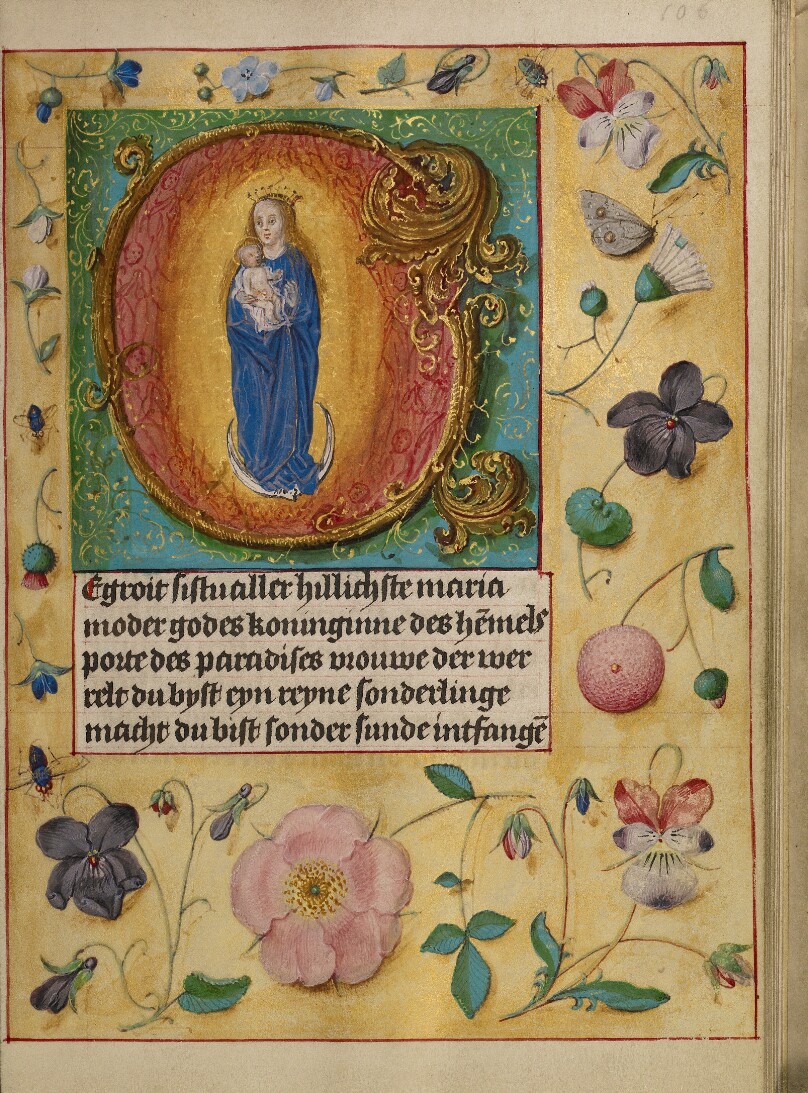 106
Egroit sistu aller hillichste maria
moder godes koninginne des hēmels
porte des paradises vrouwe der wer
relt du byst eyn reyne sonderlinge
macht du bist sonder sunde intfangē